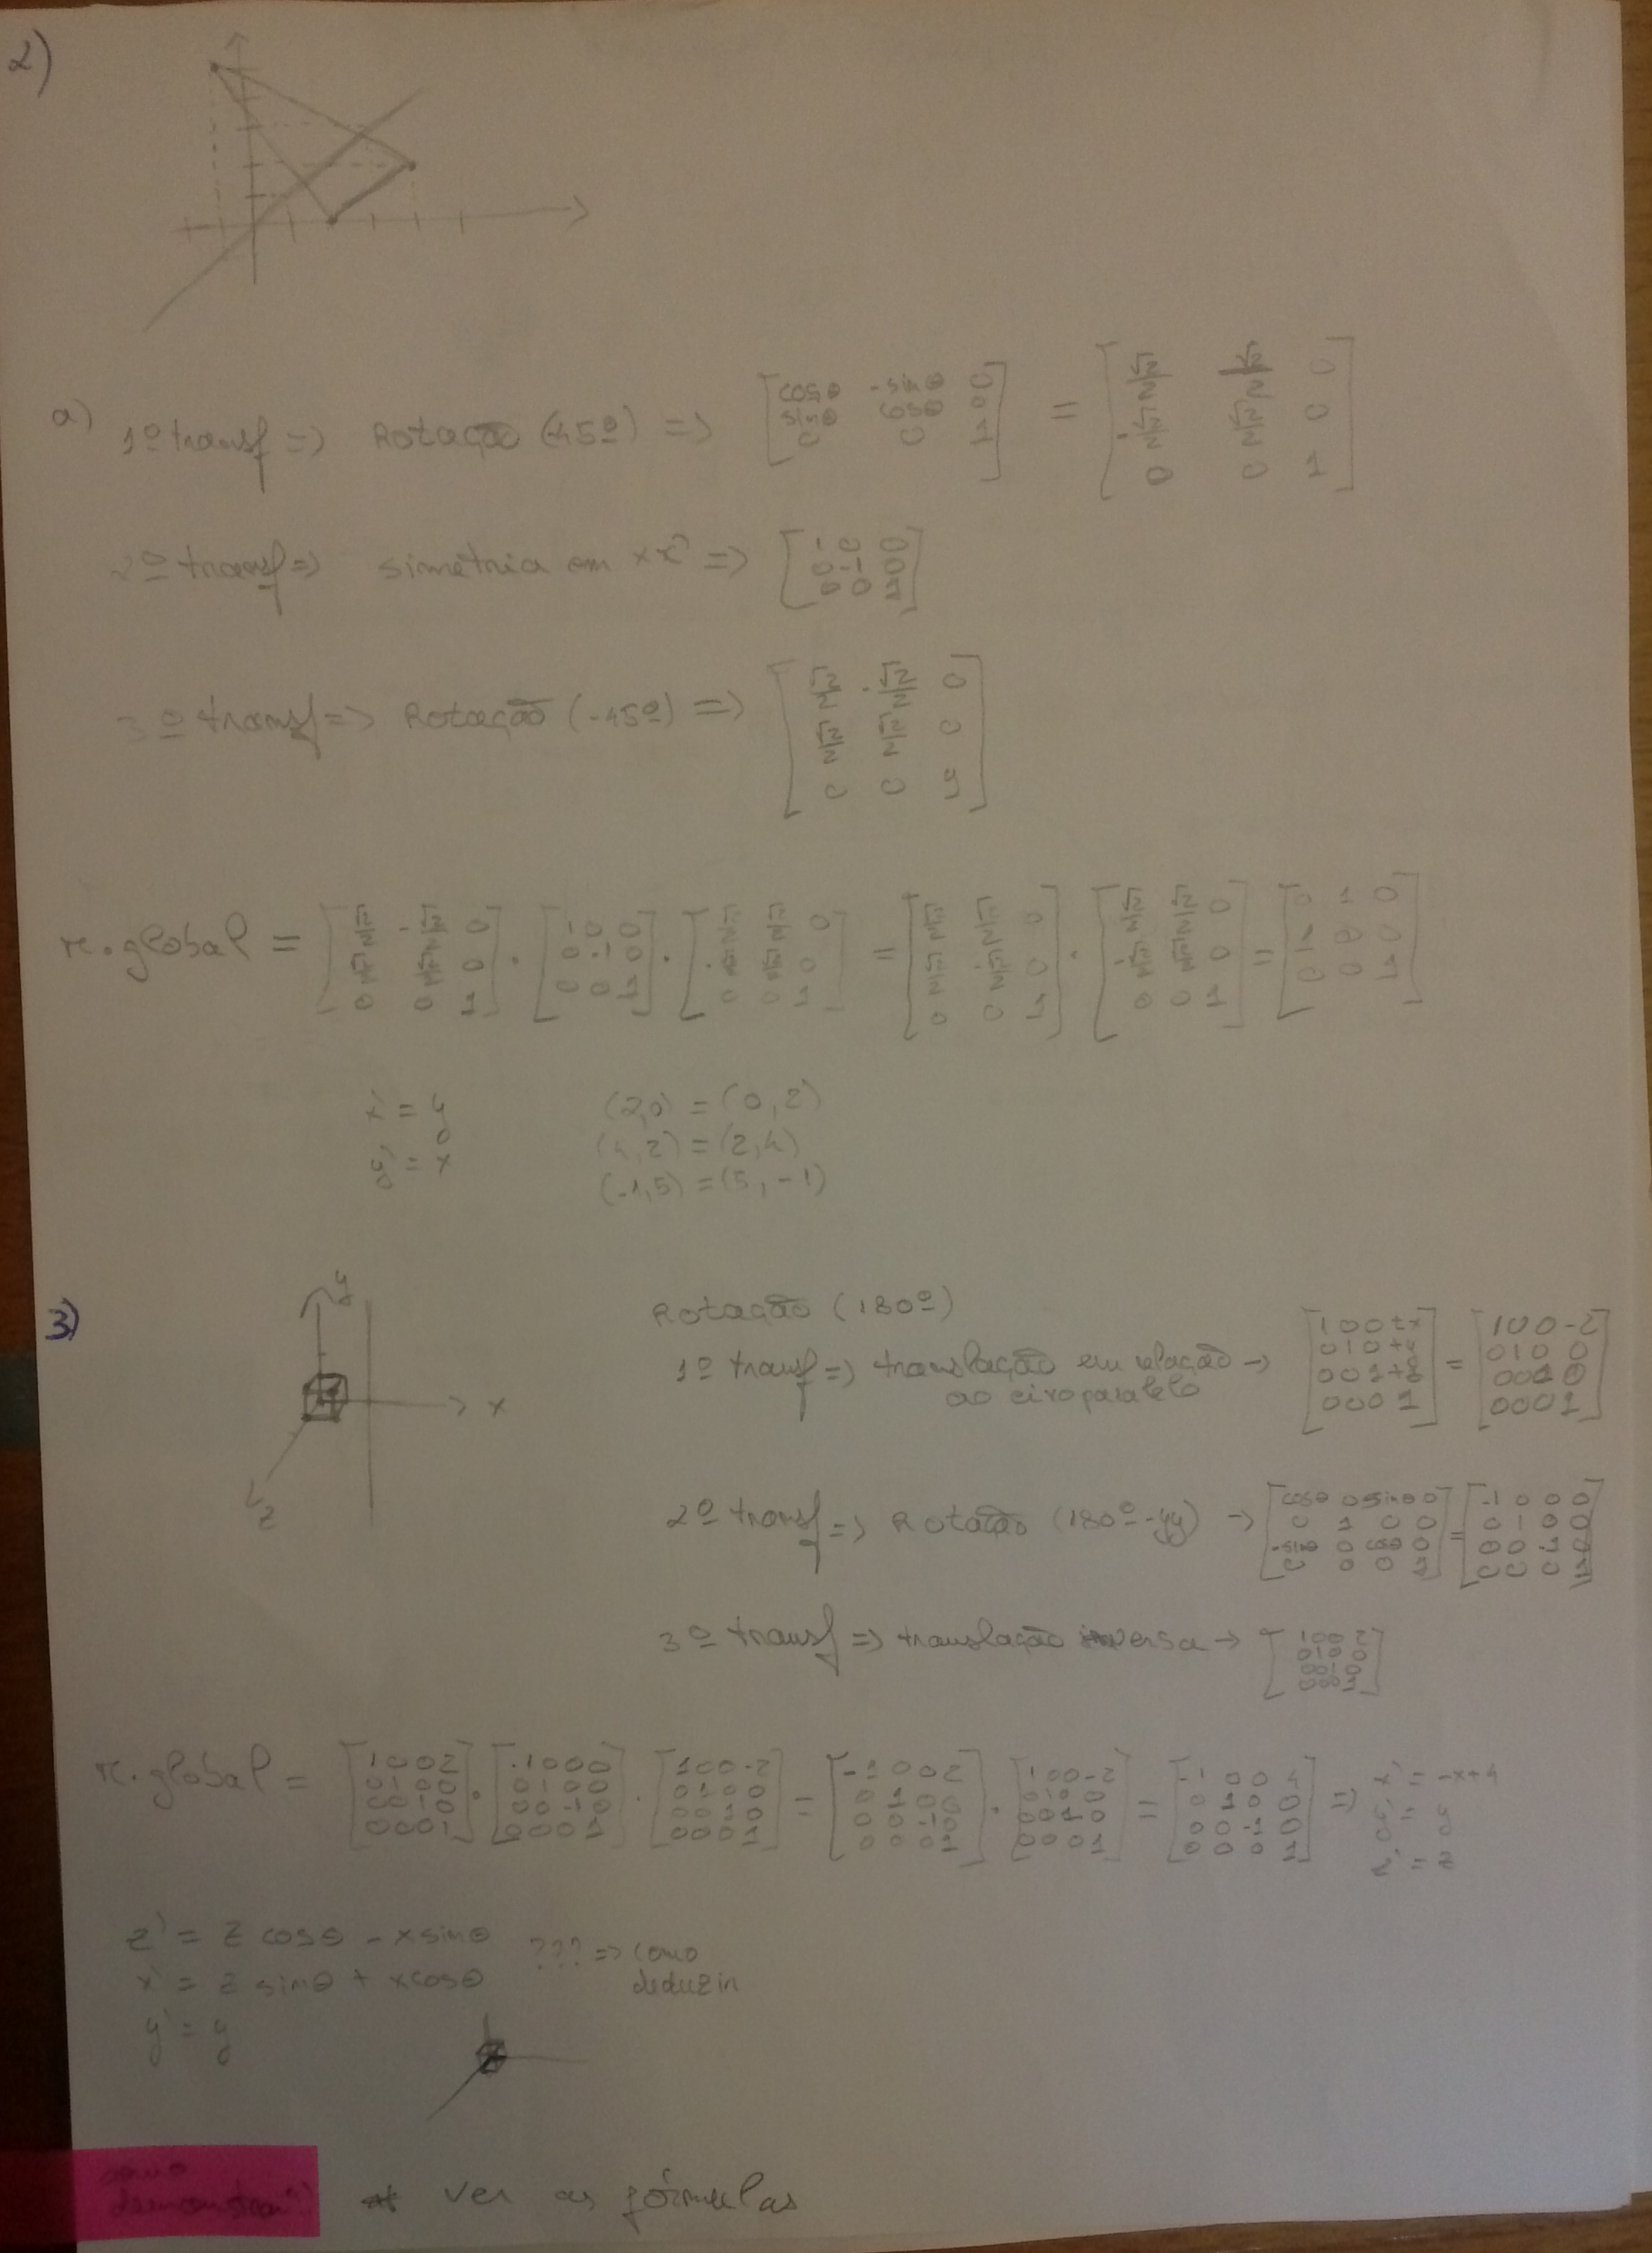 2)
a) 1º transf => Rotação (-45º) => [cosθ -sinθ 0; sinθ cosθ 0; 0 0 1] = [√2/2 √2/2 0; -√2/2 √2/2 0; 0 0 1]
2º transf => simetria em xx' => [1 0 0; 0 -1 0; 0 0 1]
3º transf => Rotação (-45º) => [√2/2 -√2/2 0; √2/2 √2/2 0; 0 0 1]
r.global = [√2/2 -√2/2 0; √2/2 √2/2 0; 0 0 1] . [1 0 0; 0 -1 0; 0 0 1] . [√2/2 √2/2 0; -√2/2 √2/2 0; 0 0 1] = [√2/2 √2/2 0; √2/2 -√2/2 0; 0 0 1] . [√2/2 √2/2 0; -√2/2 √2/2 0; 0 0 1] = [0 1 0; 1 0 0; 0 0 1]
x' = y (2,0) = (0,2)
y' = x (4,2) = (2,4)
(-1,5) = (5,-1)
3)
y
x
z
Rotação (180º)
1º transf => translação em relação ao eixo paralelo -> [1 0 0 tx; 0 1 0 ty; 0 0 1 tz; 0 0 0 1] = [1 0 0 -2; 0 1 0 0; 0 0 1 0; 0 0 0 1]
2º transf => Rotação (180º-yy) -> [cosθ 0 sinθ 0; 0 1 0 0; -sinθ 0 cosθ 0; 0 0 0 1] = [-1 0 0 0; 0 1 0 0; 0 0 -1 0; 0 0 0 1]
3º transf => translação inversa -> [1 0 0 2; 0 1 0 0; 0 0 1 0; 0 0 0 1]
r.global = [1 0 0 2; 0 1 0 0; 0 0 1 0; 0 0 0 1] . [-1 0 0 0; 0 1 0 0; 0 0 -1 0; 0 0 0 1] . [1 0 0 -2; 0 1 0 0; 0 0 1 0; 0 0 0 1] = [-1 0 0 2; 0 1 0 0; 0 0 -1 0; 0 0 0 1] . [1 0 0 -2; 0 1 0 0; 0 0 1 0; 0 0 0 1] = [-1 0 0 4; 0 1 0 0; 0 0 -1 0; 0 0 0 1] => x' = -x+4
y' = y
z' = z
z' = z cosθ - x sinθ ??? => como
x' = z sinθ + x cosθ deduzir
y' = y
como
demonstrar? ver as fórmulas